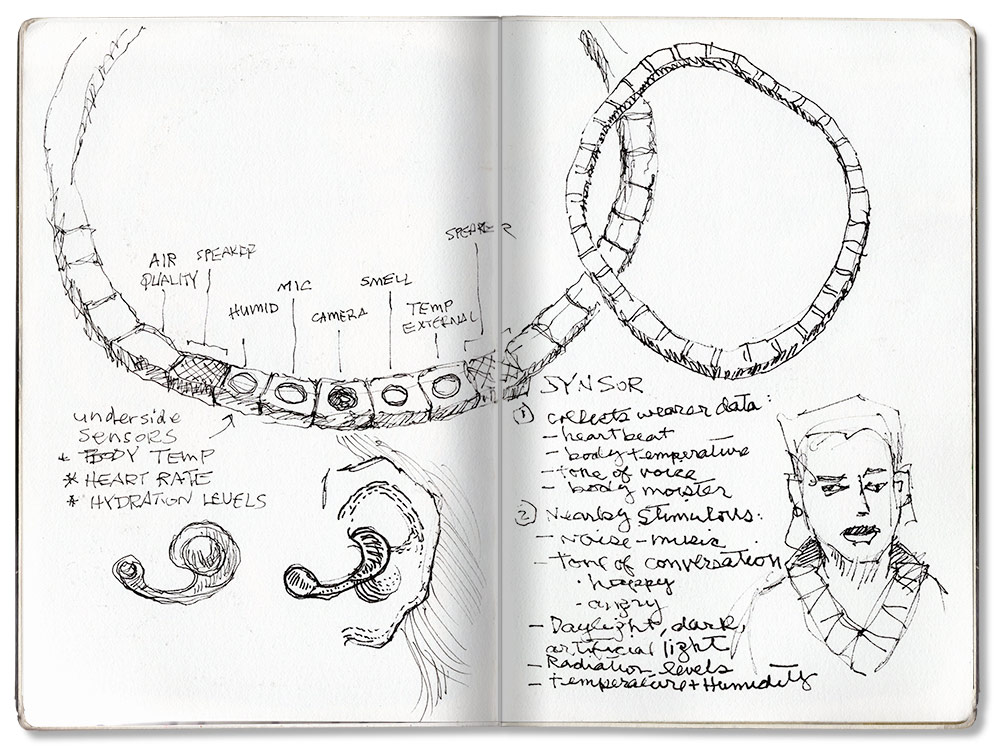 AIR
QUALITY
SPEAKER
HUMID
MIC
CAMERA
SMELL
TEMP
EXTERNAL
SPEAKER
underside
SENSORS
* BODY TEMP
* HEART RATE
* HYDRATION LEVELS
SYNSOR
① collects wearer data:
- heartbeat
- body temperature
- tone of voice
- body moister
② Nearby Stimulous:
- Noise - music
- Tone of conversation
· happy
- angry
- Daylight, dark,
artificial light
- Radiation levels
- temperature + Humidity